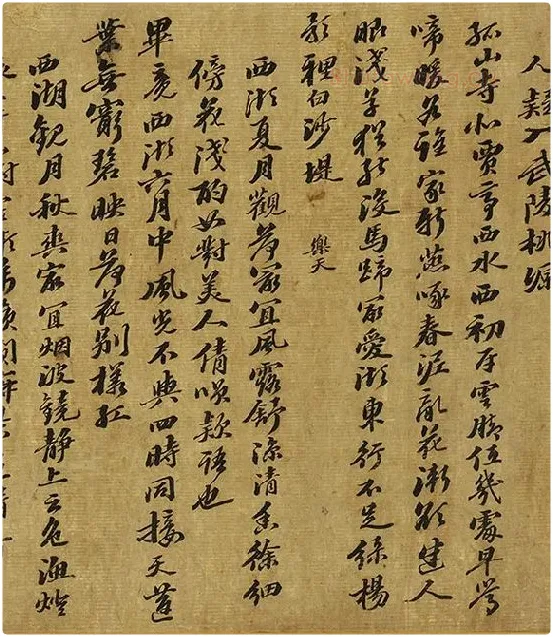 人疑入武陵桃源
孤山寺北賈亭西水面初平雲脚低幾處早鶯
啼暖谷誰家新燕啄春泥亂花漸欲迷人
眼淺草猶能沒馬蹄最愛湖東行不足綠楊
影裡白沙堤 樂天
西湖夏月觀荷最宜風露舒涼清香徐細
傍花淺酌如對美人倩笑款語也
畢竟西湖六月中風光不與四時同接天蓮
葉無窮碧映日荷花別樣紅
西湖觀月秋爽最宜烟波鏡靜上下一色漁燈